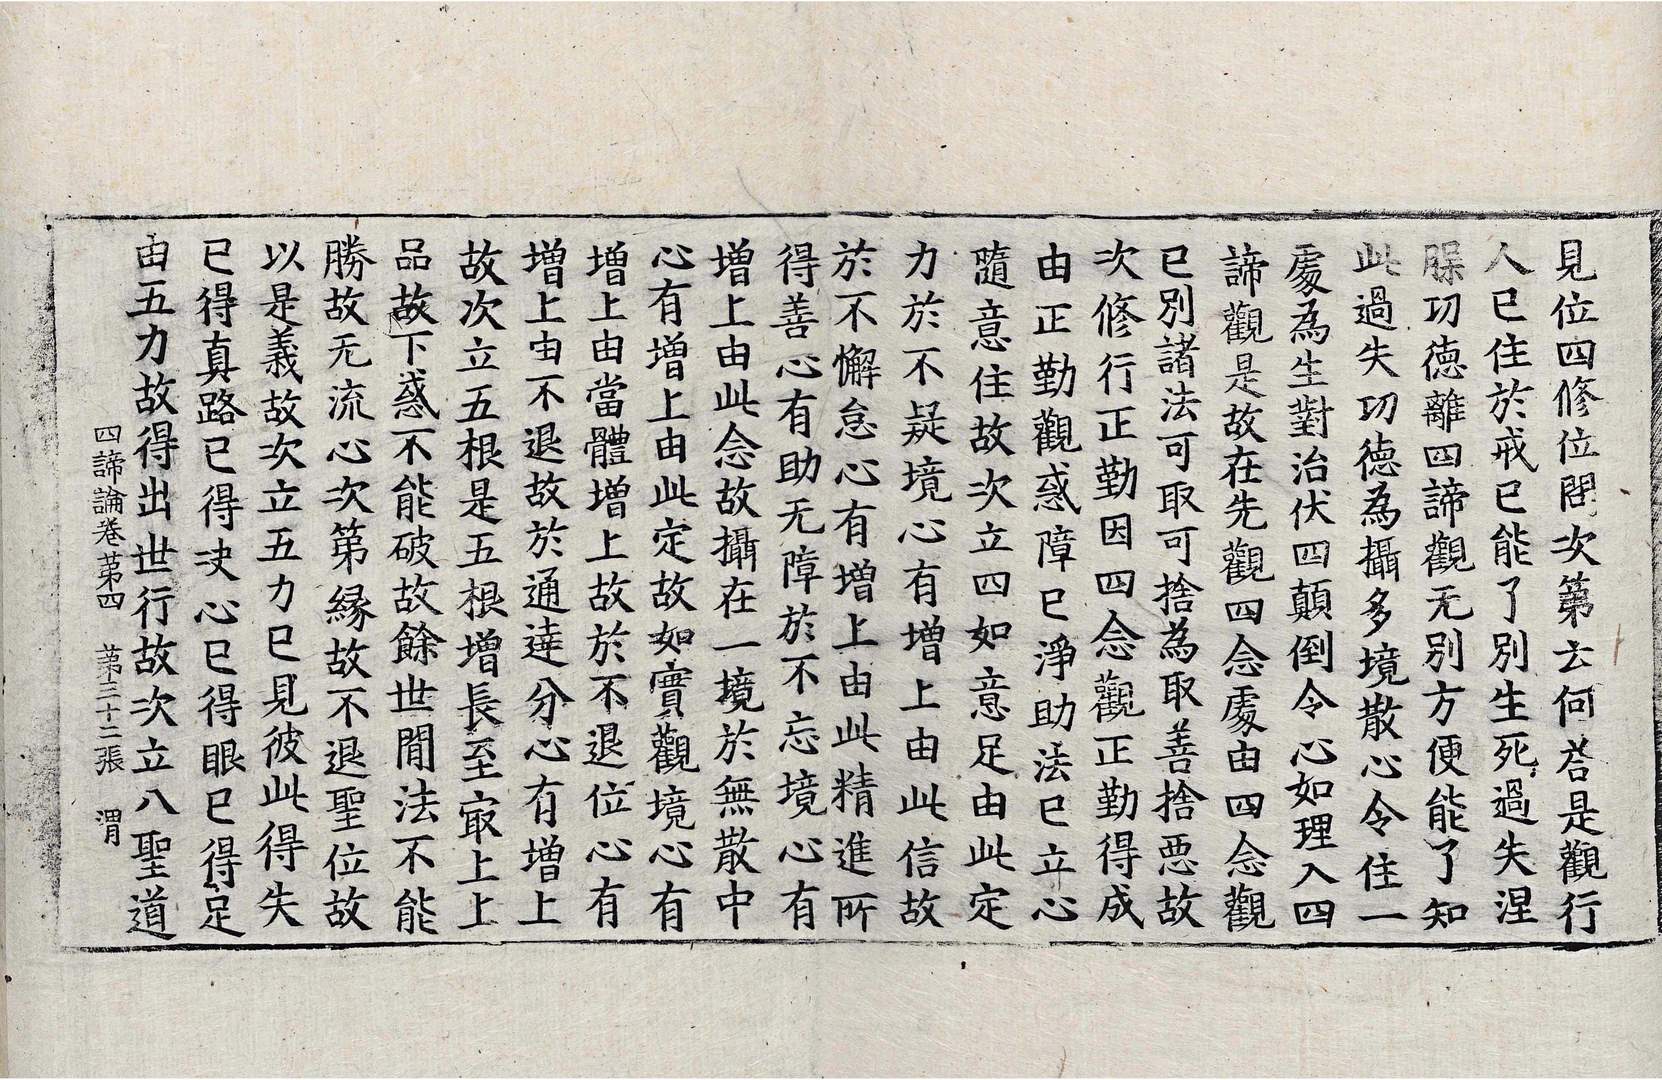 見位四修位問次第云何荅是觀行
人已住於戒已能了別生死過失涅
縣功德離四諦觀无別方便能了知
此過失功德為攝多境散心令住一
處為生對治伏四顛倒令心如理入四
諦觀是故在先觀四念處由四念觀
已別諸法可取可捨為取善捨惡故
次修行正勤因四念觀正勤得成
由正勤觀惑障已淨助法已立心
隨意住故次立四如意足由此定
力於不疑境心有增上由此信故
於不懈怠心有增上由此精進所
得善心有助无障於不忘境心有
增上由此念故攝在一境於無散中
心有增上由此定故如實觀境心有
增上由當體增上故於不退位心有
增上由不退故於通達分心有增上
故次立五根是五根增長至最上上
品故下惑不能破故餘世間法不能
勝故无流心次第緣故不退聖位故
以是義故次立五力已見彼此得失
已得真路已得決心已得眼已得足
由五力故得出世行故次立八聖道
四諦論卷第四　第三十二張　渭